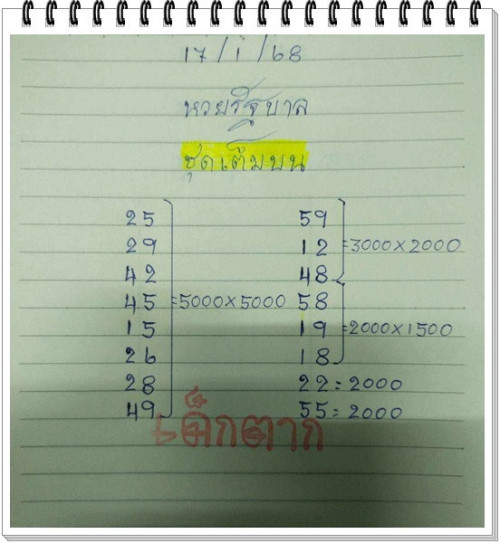 17/1/68
หวยรัฐบาล
ชุดเต็มบน
25
29
42
45 =5000×5000
15
26
28
49
59
12 =3000×2000
48
58
19 =2000×1500
18
22=2000
55=2000
เด็กตาก